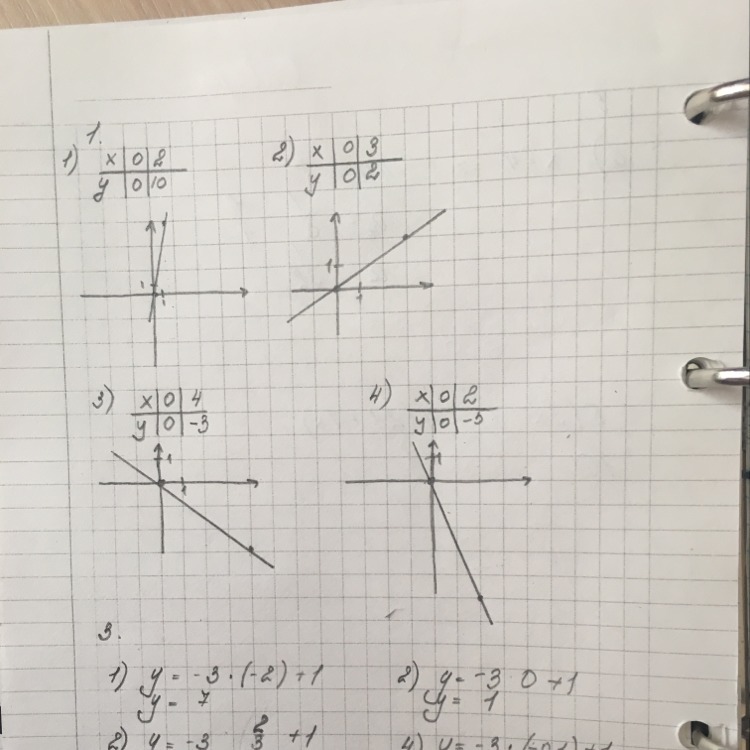 1.
1) x | 0 | 2
y | 0 | 10
2) x | 0 | 3
y | 0 | 2
1
1
3) x | 0 | 4
y | 0 | -3
4) x | 0 | 2
y | 0 | -5
1
1
1
3.
1) y = -3 · (-2) + 1
y = 7
2) y = -3 0 + 1
y = 1
2) y = -3 2/3 + 1
4) y = -3 ·